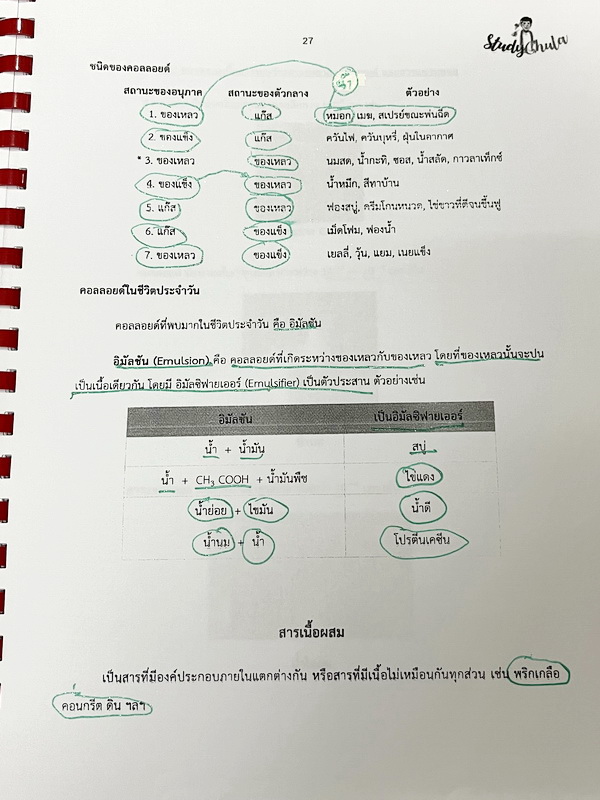 27
StudyChula
ชนิดของคอลลอยด์
สถานะของอนุภาค สถานะของตัวกลาง ตัวอย่าง
1. ของเหลว แก๊ส หมอก เมฆ, สเปรย์ขณะพ่นฉีด
2. ของแข็ง แก๊ส ควันไฟ, ควันบุหรี่, ฝุ่นในอากาศ
* 3. ของเหลว ของเหลว นมสด, น้ำกะทิ, ซอส, น้ำสลัด, กาวลาเท็กซ์
4. ของแข็ง ของเหลว น้ำหมึก, สีทาบ้าน
5. แก๊ส ของเหลว ฟองสบู่, ครีมโกนหนวด, ไข่ขาวที่ตีจนขึ้นฟู
6. แก๊ส ของแข็ง เม็ดโฟม, ฟองน้ำ
7. ของเหลว ของแข็ง เยลลี่, วุ้น, แยม, เนยแข็ง
คอลลอยด์ในชีวิตประจำวัน
คอลลอยด์ที่พบมากในชีวิตประจำวัน คือ อิมัลชัน
อิมัลชัน (Emulsion) คือ คอลลอยด์ที่เกิดระหว่างของเหลวกับของเหลว โดยที่ของเหลวนั้นจะปน
เป็นเนื้อเดียวกัน โดยมี อิมัลซิฟายเออร์ (Emulsifier) เป็นตัวประสาน ตัวอย่างเช่น
อิมัลชัน เป็นอิมัลซิฟายเออร์
น้ำ + น้ำมัน สบู่
น้ำ + CH₃ COOH + น้ำมันพืช ไข่แดง
น้ำย่อย + ไขมัน น้ำดี
น้ำนม + น้ำ โปรตีนเคซีน
สารเนื้อผสม
เป็นสารที่มีองค์ประกอบภายในแตกต่างกัน หรือสารที่มีเนื้อไม่เหมือนกันทุกส่วน เช่น พริกเกลือ
คอนกรีต ดิน ฯลฯ